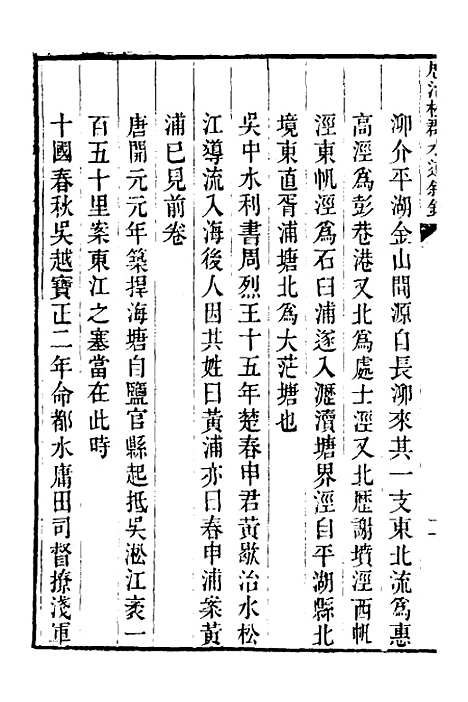 泖介平湖金山間源自長泖來其一支東北流爲惠
高涇爲彭巷港又北爲處士涇又北歷謝墳涇西帆
涇東帆涇爲石臼浦遂入瀝瀆塘界涇自平湖縣北
境東直胥浦塘北爲大茫塘也
吳中水利書周烈王十五年楚春申君黃歇治水松
江導流入海後人因其姓曰黃浦亦曰春申浦案黃
浦已見前卷
唐開元元年築捍海塘自鹽官縣起抵吳淞江袤一
百五十里案東江之塞當在此時
十國春秋吳越寶正二年命都水庸田司督撩淺軍